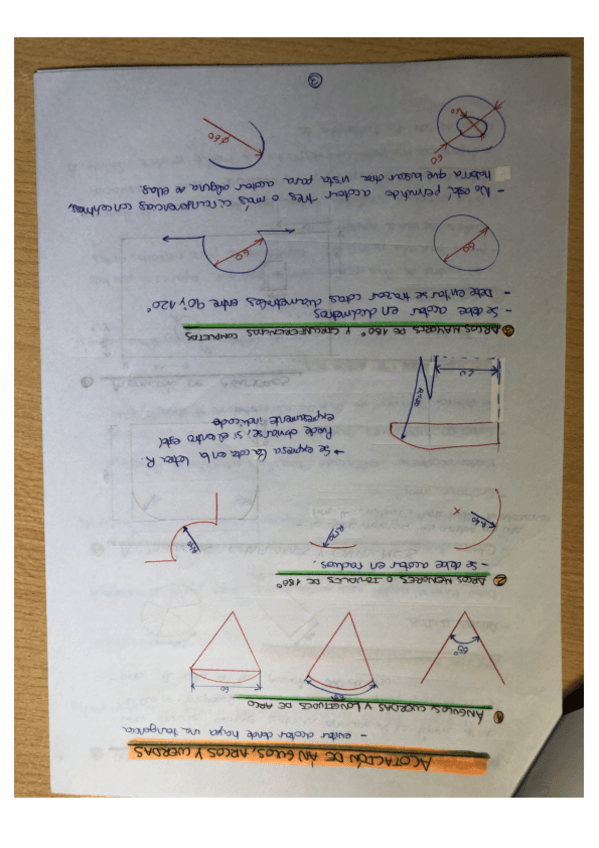 ACOTACIÓN DE ÁNGULOS, ARCOS Y CUERDAS
- evitar acotar donde haya una tangencia
1 ÁNGULOS, CUERDAS Y LONGITUDES DE ARCO
60
2 ARCOS MENORES O IGUALES DE 180°
- Se debe acotar en radios.
→ Se expresa la cota en la letra R.
Puede obviarse, si el centro está
expresamente indicado
3 ARCOS MAYORES DE 180° Y CIRCUNFERENCIAS COMPLETAS
- Se debe acotar en diámetros
- Debe evitarse trazar cotas diametrales entre 90° y 120°
60
60
- No está permitido acotar tres o más circunferencias concéntricas,
habría que buscar otra vista para acotar alguna de ellas.
60
Ø 60
3